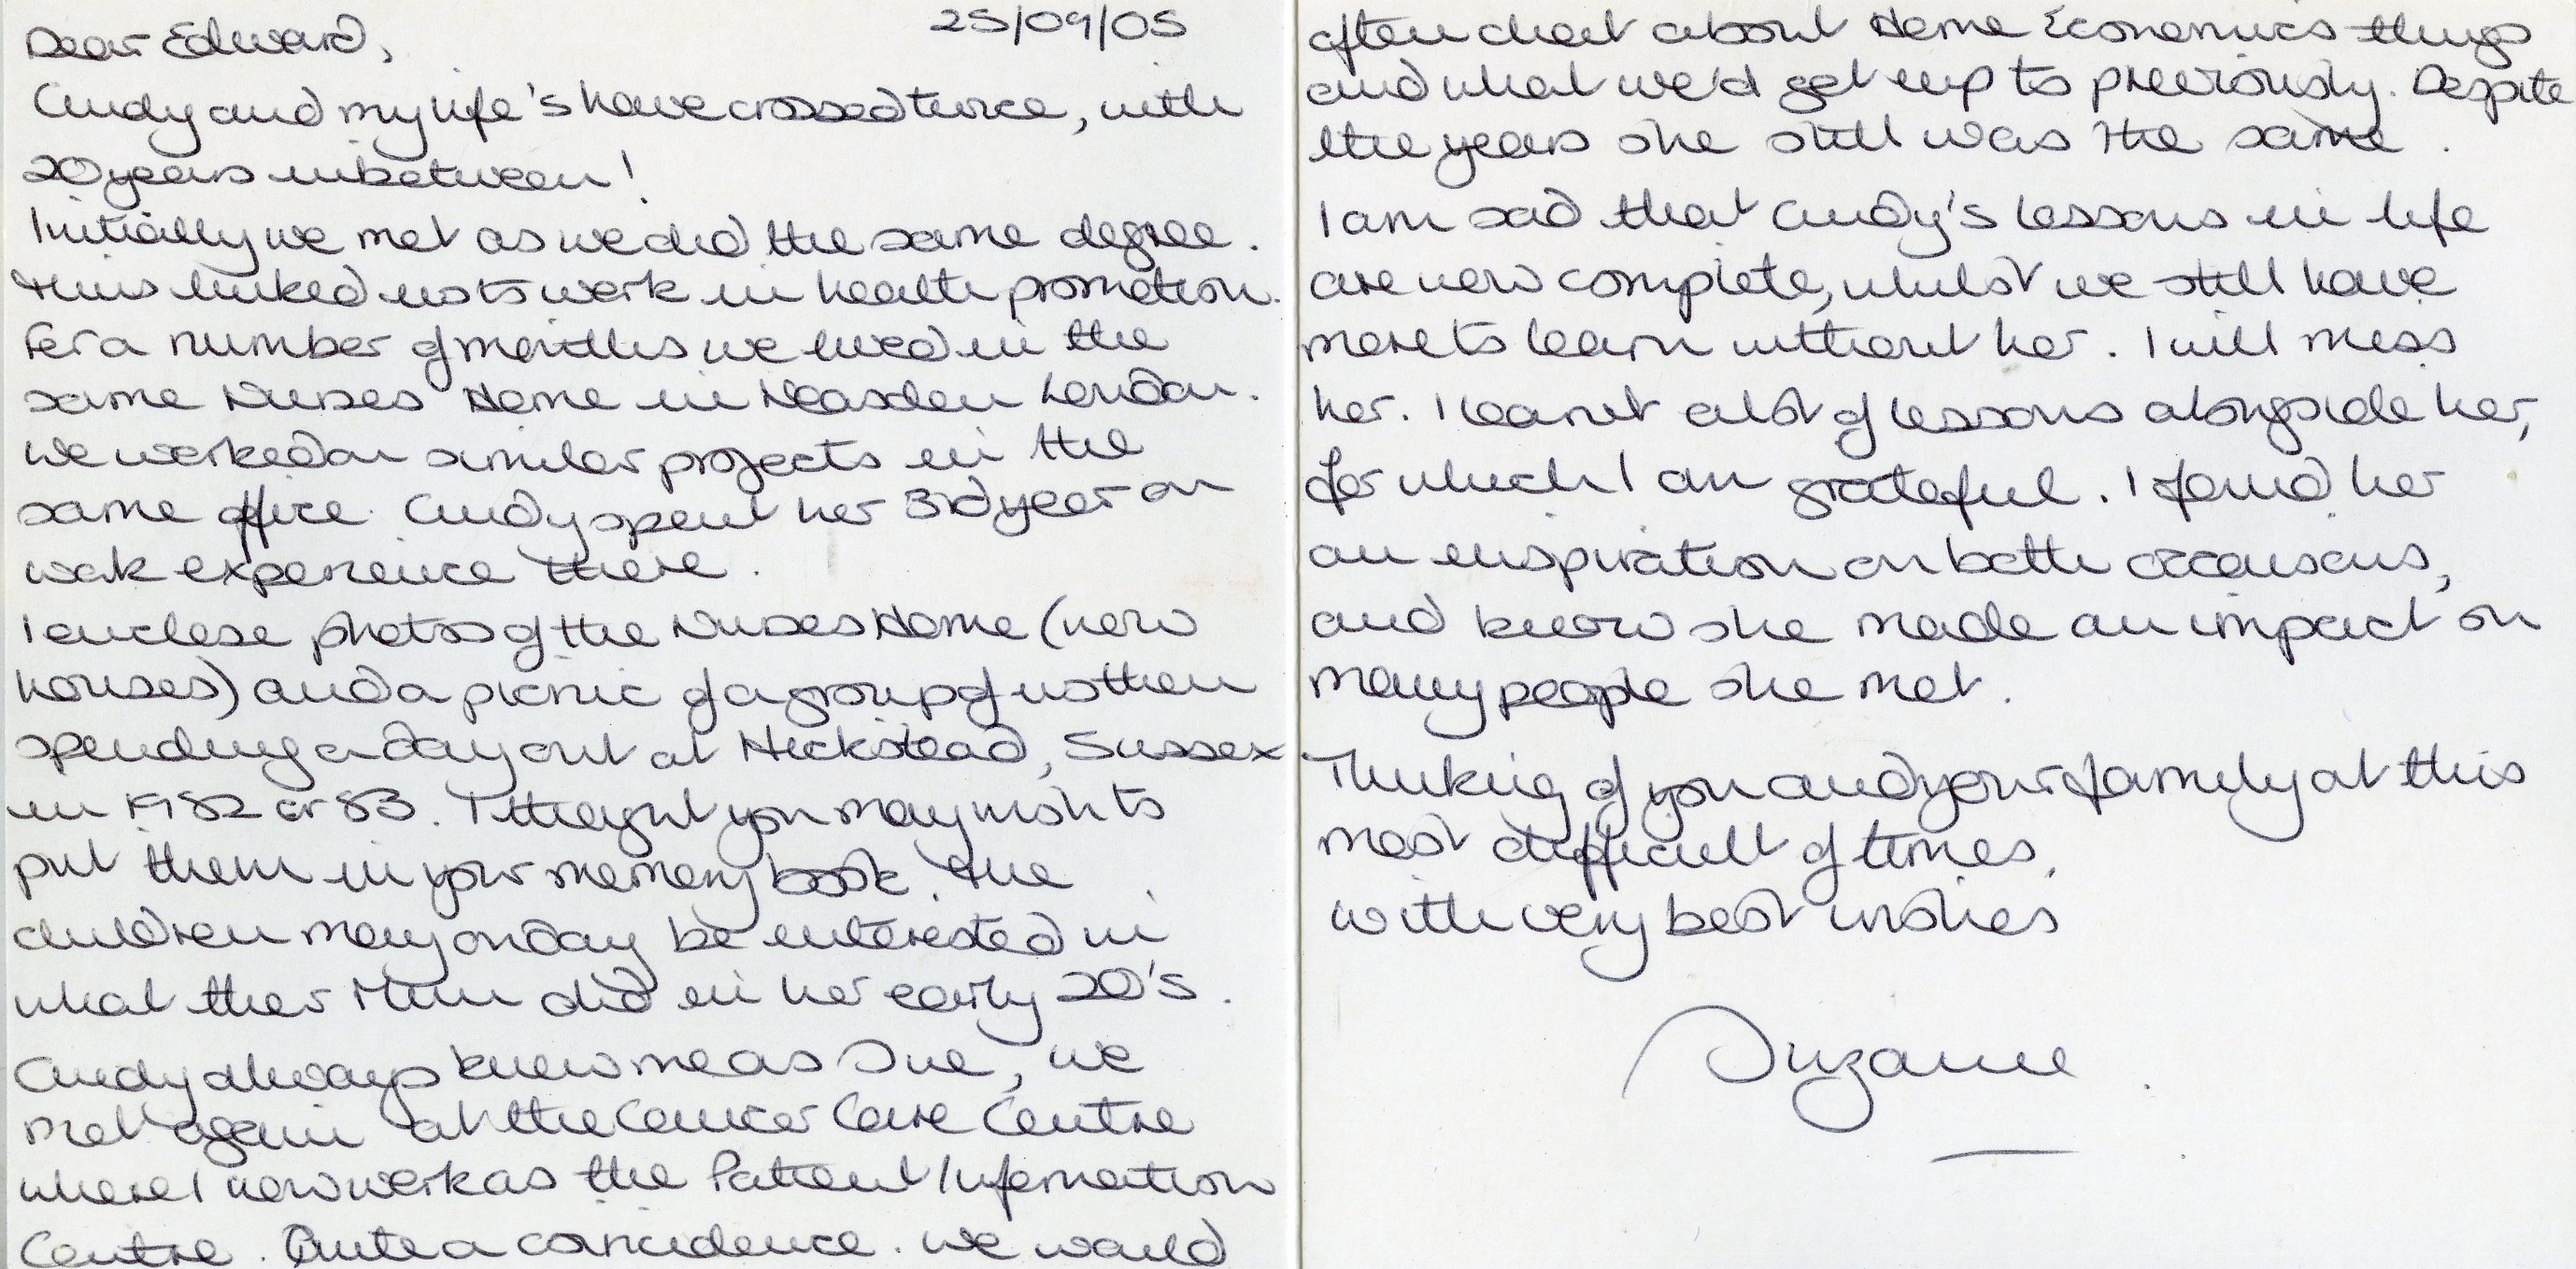 25/09/05
Dear Edward,
Cindy and my life's have crossed twice, with
20 years inbetween!
Initially we met as we did the same degree.
This linked us to work in health promotion.
For a number of months we lived in the
same Nurses Home in Neasden London.
We worked on similar projects in the
same office. Cindy spent her 3rd year on
work experience there.
I enclose photos of the Nurses Home (now
houses) and a picnic of a group of us then
spending a day out at Hickstead, Sussex
in 1982 or 83. I thought you may wish to
put them in your memory book. The
children may on day be interested in
what ther Mum did in her early 20's.
Cindy always knew me as Sue, we
met again at the Cancer Care Centre
where I now work as the Patient Information
Centre. Quite a coincidence. We would
often chat about Home Economics things
and what we'd get up to previously. Despite
the years she still was the same.
I am sad that Cindy's lessons in life
are now complete, whilst we still have
more to learn without her. I will miss
her. I learnt alot of lessons alongside her,
for which I am grateful. I found her
an inspiration on both occasions,
and know she made an impact on
many people she met.
Thinking of you and your family at this
most difficult of times,
with very best wishes
Suzanne